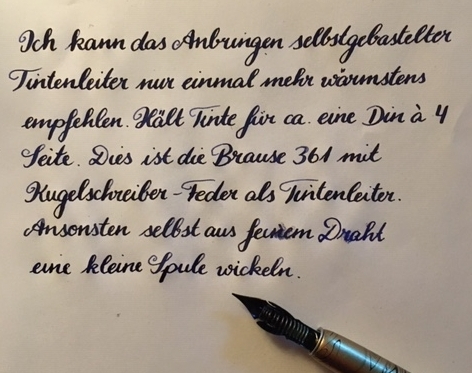 Ich kann das Anbringen selbstgebastelter
Tintenleiter nur einmal mehr wärmstens
empfehlen. Hält Tinte für ca. eine Din à 4
Seite. Dies ist die Brause 361 mit
Kugelschreiber-Feder als Tintenleiter.
Ansonsten selbst aus feinem Draht
eine kleine Spule wickeln.